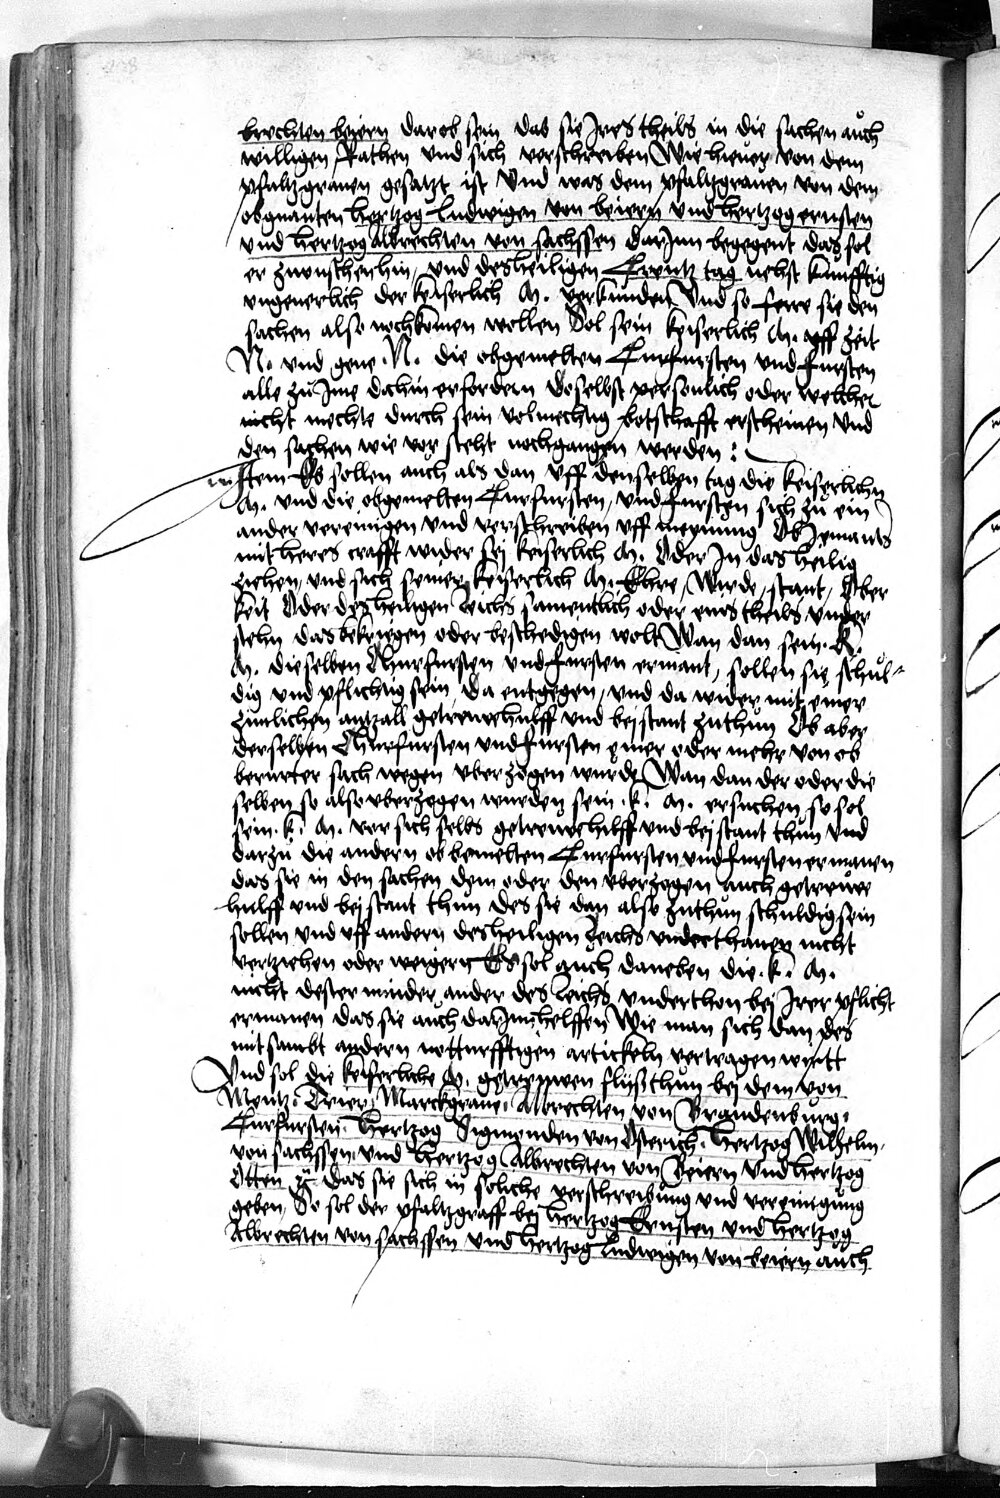 brechten beiern darob sein das sie Jres theils in die sachen auch
willigen Rathen vnd sich verschreiben Wie hieuor von dem
pfaltzgrauen gesatzt ist Vnd was dem pfaltzgrauen von dem
obgnanten hertzog Ludwigen von beiern vnd hertzog ernsten
vnd hertzog Albrechten von sachssen darJnn begegent das sol
er zwuschen hin, vnd des heiligen Creutz tag nehst kunfftig
vngeuerlich der keiserlich M. verkunden Vnd so ferre sie den
sachen also nochkomen wollen Sol sein keiserlich M. vff zeit
N. vnd gene .N. die obgemelten Curfursten vnd fursten
alle zu Jme dahin erfordern doselbst personlich oder welcher
nicht mechte durch sein volmechtig botschafft erscheinen vnd
den sachen wie vor steht nochgangen werden :
Jtem Es sollen auch als dan vff denselben tag die keiserlich
M. vnd die obgemelten Curfursten, vnd fursten sich zu ein
ander vereinigen vnd verschreiben vff meynung Ob Jemants
mit heres crafft wider sei keiserlich M. Oder Jn das heilig
ziehen, vnd sich seiner keiserlich M. Ehre, Wirde, stant, Ober
keit Oder des heiligen Reichs samentlich oder eins theils vnder
stehn das bekriegen oder beschedigen wolt Wan dan sein .K.
M. dieselben Churfursten vnd fursten ermant, sollen sie schul-
dig vnd pflichtig sein, da entgegen, vnd da wider mit einer
zimlichen antzall getrewe hulff vnd beistant zuthun Ob aber
derselben Churfursten vnd fursten einer oder mehr von ob
berurter sach wegen vberzogen wurde Wan dan der oder die
selben so also vberzogen wurden sein .k. M. ersuchen so sol
sein .k. M. vor sich selbs getrewe hilff vnd beistant thun vnd
darzu die andern ob bemelten Curfursten vnd fursten ermanen
das sie in den sachen dem oder den vberzogen auch getreuwe
hulff vnd beistant thun des sie dan also zuthun schuldig sein
sollen vnd vff andern des heiligen Reichs vnderthanen nicht
vertziehen oder weigern Es sol auch daneben die .k. M.
nicht dester minder ander des Reichs vnderthon bei Jrer pflicht
ermanen das sie auch darJnn helffen Wie man sich dan des
mit sambt andern notturfftigen artickeln vertragen wirtt
Vnd sol die keiserliche M. getreuwen flyß thun bei dem von
Mentz. Trier. Marckgraue. Albrechten von Brandenburg.
Curfursten. hertzog Sigmonden von Osterich. hertzog Wilhelm.
von sachssen vnd hertzog Albrechten von Beiern vnd hertzog
Otten das sie sich in soliche verschreibung vnd vereinigung
geben, So sol der pfaltzgraff bei hertzog Ernsten vnd hertzog
Albrechten von sachssen vnd hertzog Ludwigen von beiern auch